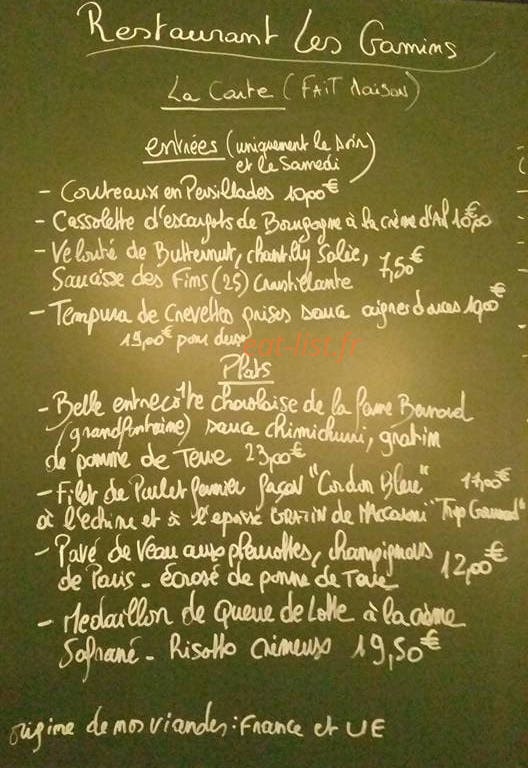 Restaurant Les Gamins
La Carte (FAIT Maison)
entrées (uniquement le soir
et le Samedi)
- Couteaux en Persillades 10,00€
- Cassolette d'escargots de Bourgogne à la crème d'Ail 10,00€
- Velouté de Butternut, chantilly Salée, 7,50€
Saucisse des Fins (25) Croustillante
- Tempura de Crevettes grises sauce aigres douces 10,00€
19,00€ pour deux
eat-list.fr
Plats
- Belle entrecôte charolaise de la ferme Bonnard
(grandfontaine) sauce chimichurri, gratin
de pomme de Terre 23,00€
- Filet de Poulet fermier façon "Cordon Bleu" 17,00€
à l'échine et à l'epoisse GRATIN de Maccaroni "Trop Gourmand"
- Pavé de Veau aux pleurottes, champignons
de Paris - écrasé de pomme de Terre 12,00€
- Medaillon de Queue de Lotte à la crème
Safrané - Risotto Crémeux 19,50€
origine de nos viandes: France et UE